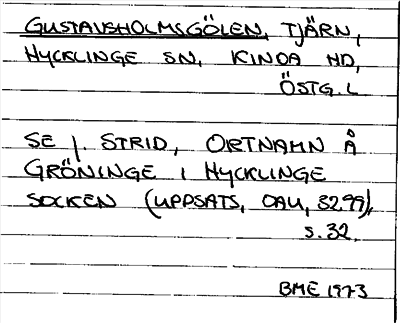 GUSTAVSHOLMSGÖLEN, TJÄRN,
HYCKLINGE SN, KINDA HD,
ÖSTG. L
SE J. STRID, ORTNAMN Å
GRÖNINGE I HYCKLINGE
SOCKEN (UPPSATS, OAU, 3299),
S. 32.
BME 1973